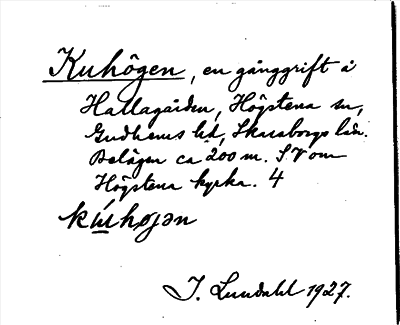 Kuhögen, en gånggrift å
Hallagården, Högstena sn,
Gudhems hd, Skaraborgs län.
Belägen ca 200 m. S.V om
Högstena kyrka. 4
kúhøjən
J. Lundahl 1927.